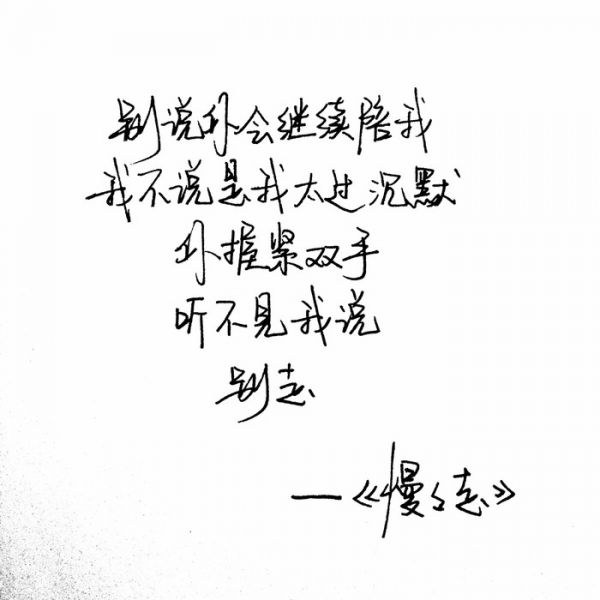 别说你会继续陪我
我不说是我太过沉默
你握紧双手
听不见我说
别走
—《慢々走》